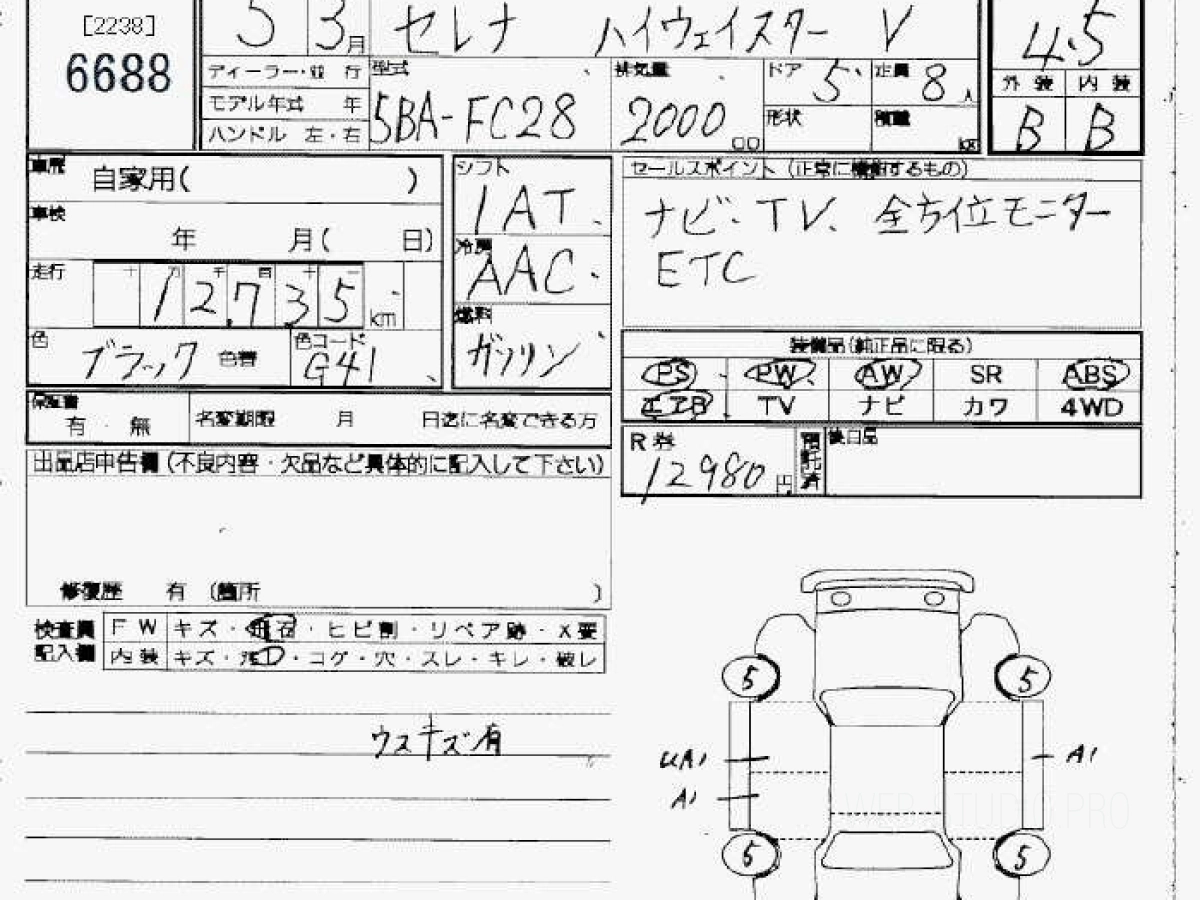 [2238]
6688
5 3月 セレナ ハイウェイスター V
4.5
ディーラー・並行
モデル年式 年
ハンドル 左・右
型式
5BA-FC28
排気量
2000 cc
ドア 5 定員 8人
形状 積載 kg
外装 内装
B B
車歴 自家用( )
車検
年 月( 日)
走行 十 万 千 百 十 一
12,735 km
色 ブラック 色替 色コード G41
シフト
IAT
冷房
AAC
燃料
ガソリン
セールスポイント (正常に機能するもの)
ナビ・TV、全方位モニター
ETC
装備品(純正品に限る)
PS PW AW SR ABS
エアB TV ナビ カワ 4WD
保証書
有・無 名変期限 月 日迄に名変できる方
R券 12980円 預託済 後日品
出品店申告欄(不良内容・欠品など具体的に記入して下さい)
修復歴 有 (箇所 )
検査員記入欄
FW キズ・飛石・ヒビ割・リペア跡・X要
内装 キズ・汚レ・コゲ・穴・スレ・キレ・破レ
ウスキズ有
5 5
UA1 A1
A1
WEB STUDIO PRO
5 5